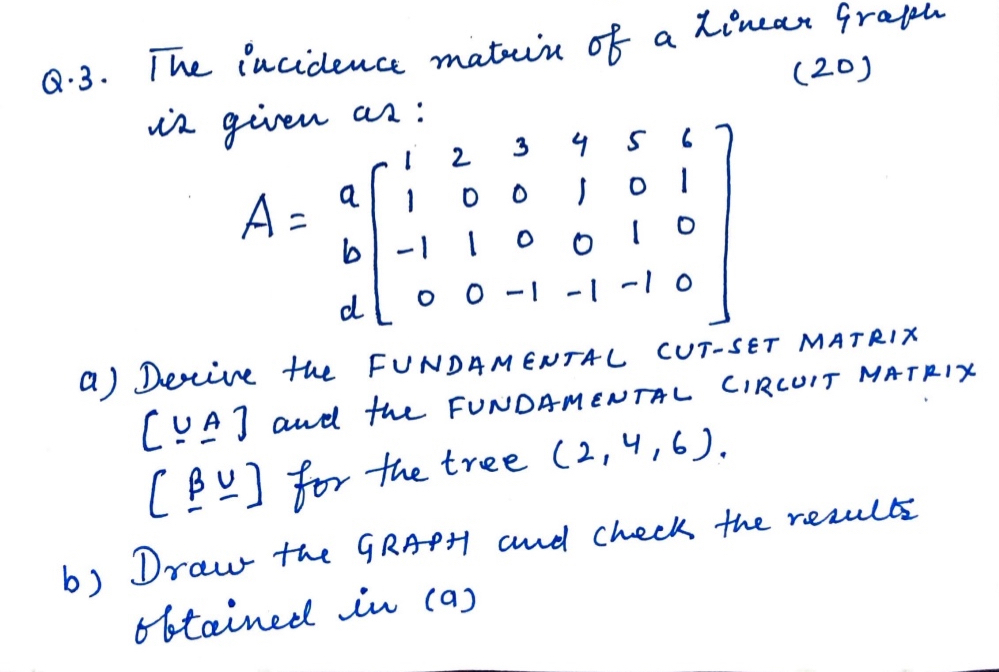 Q.3. The incidence matrix of a Linear Graph
is given as : (20)
1 2 3 4 5 6
A = a [ 1 0 0 1 0 1
b -1 1 0 0 1 0
d 0 0 -1 -1 -1 0 ]
a) Derive the FUNDAMENTAL CUT-SET MATRIX
[U A] and the FUNDAMENTAL CIRCUIT MATRIX
[β U] for the tree (2,4,6).
b) Draw the GRAPH and check the results
obtained in (a)